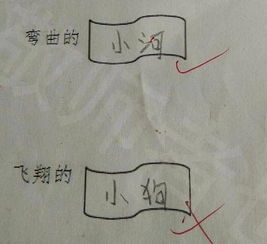 弯曲的 小河
飞翔的 小狗